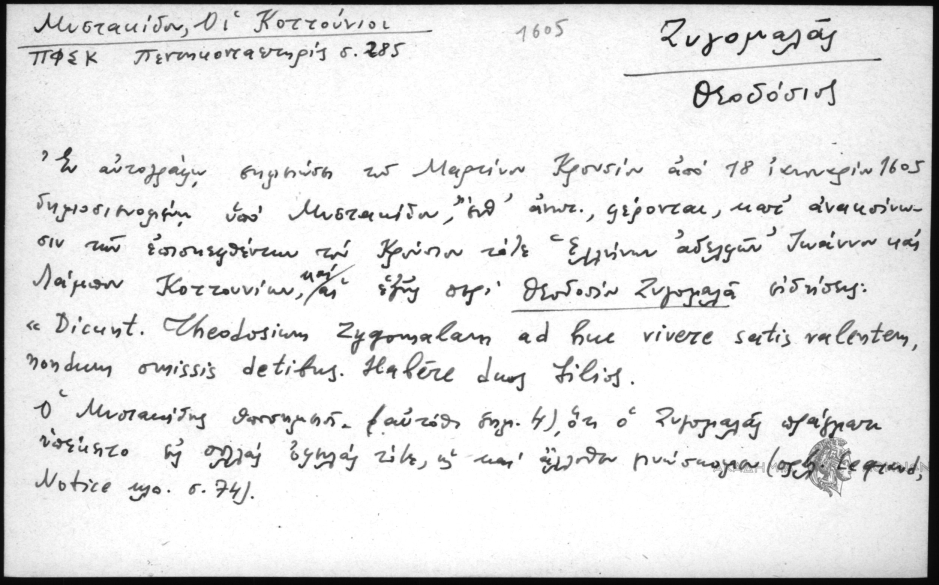 Μυστακίδου, Οἱ Κοττούνιοι
1605
Ζυγομαλᾶς
ΠΦΣΚ Πεντηκονταετηρὶς σ. 285
Θεοδόσιος
Ἐν αὐτογράφῳ σημειώσει τοῦ Μαρτίνου Κρουσίου ἀπὸ 18 1605
ὑπὸ Μυστακίδου, ἔνθ' ἀνωτ., φέρονται, κατ' ἀνακοίνω-
σιν τῶν ἐπισκεφθέντων τὸν Κρούσιον τότε Ἑλλήνων ἀδελφῶν Ἰωάννου καὶ
Λάμπου Κοττουνίων, καὶ αἱ ἑξῆς περὶ Θεοδοσίου Ζυγομαλᾶ εἰδήσεις:
« Dicunt. Theodosium Zygomalam ad huc vivere satis valentem,
nondum omissis detibus. Habere duos filios.
Ὁ Μυστακίδης (αὐτόθι σημ. 4), ὅτι ὁ Ζυγομαλᾶς πράγματι
τότε, ὡς καὶ ἄλλοθεν γινώσκομεν Legrand,
Notice κλπ. σ. 74).